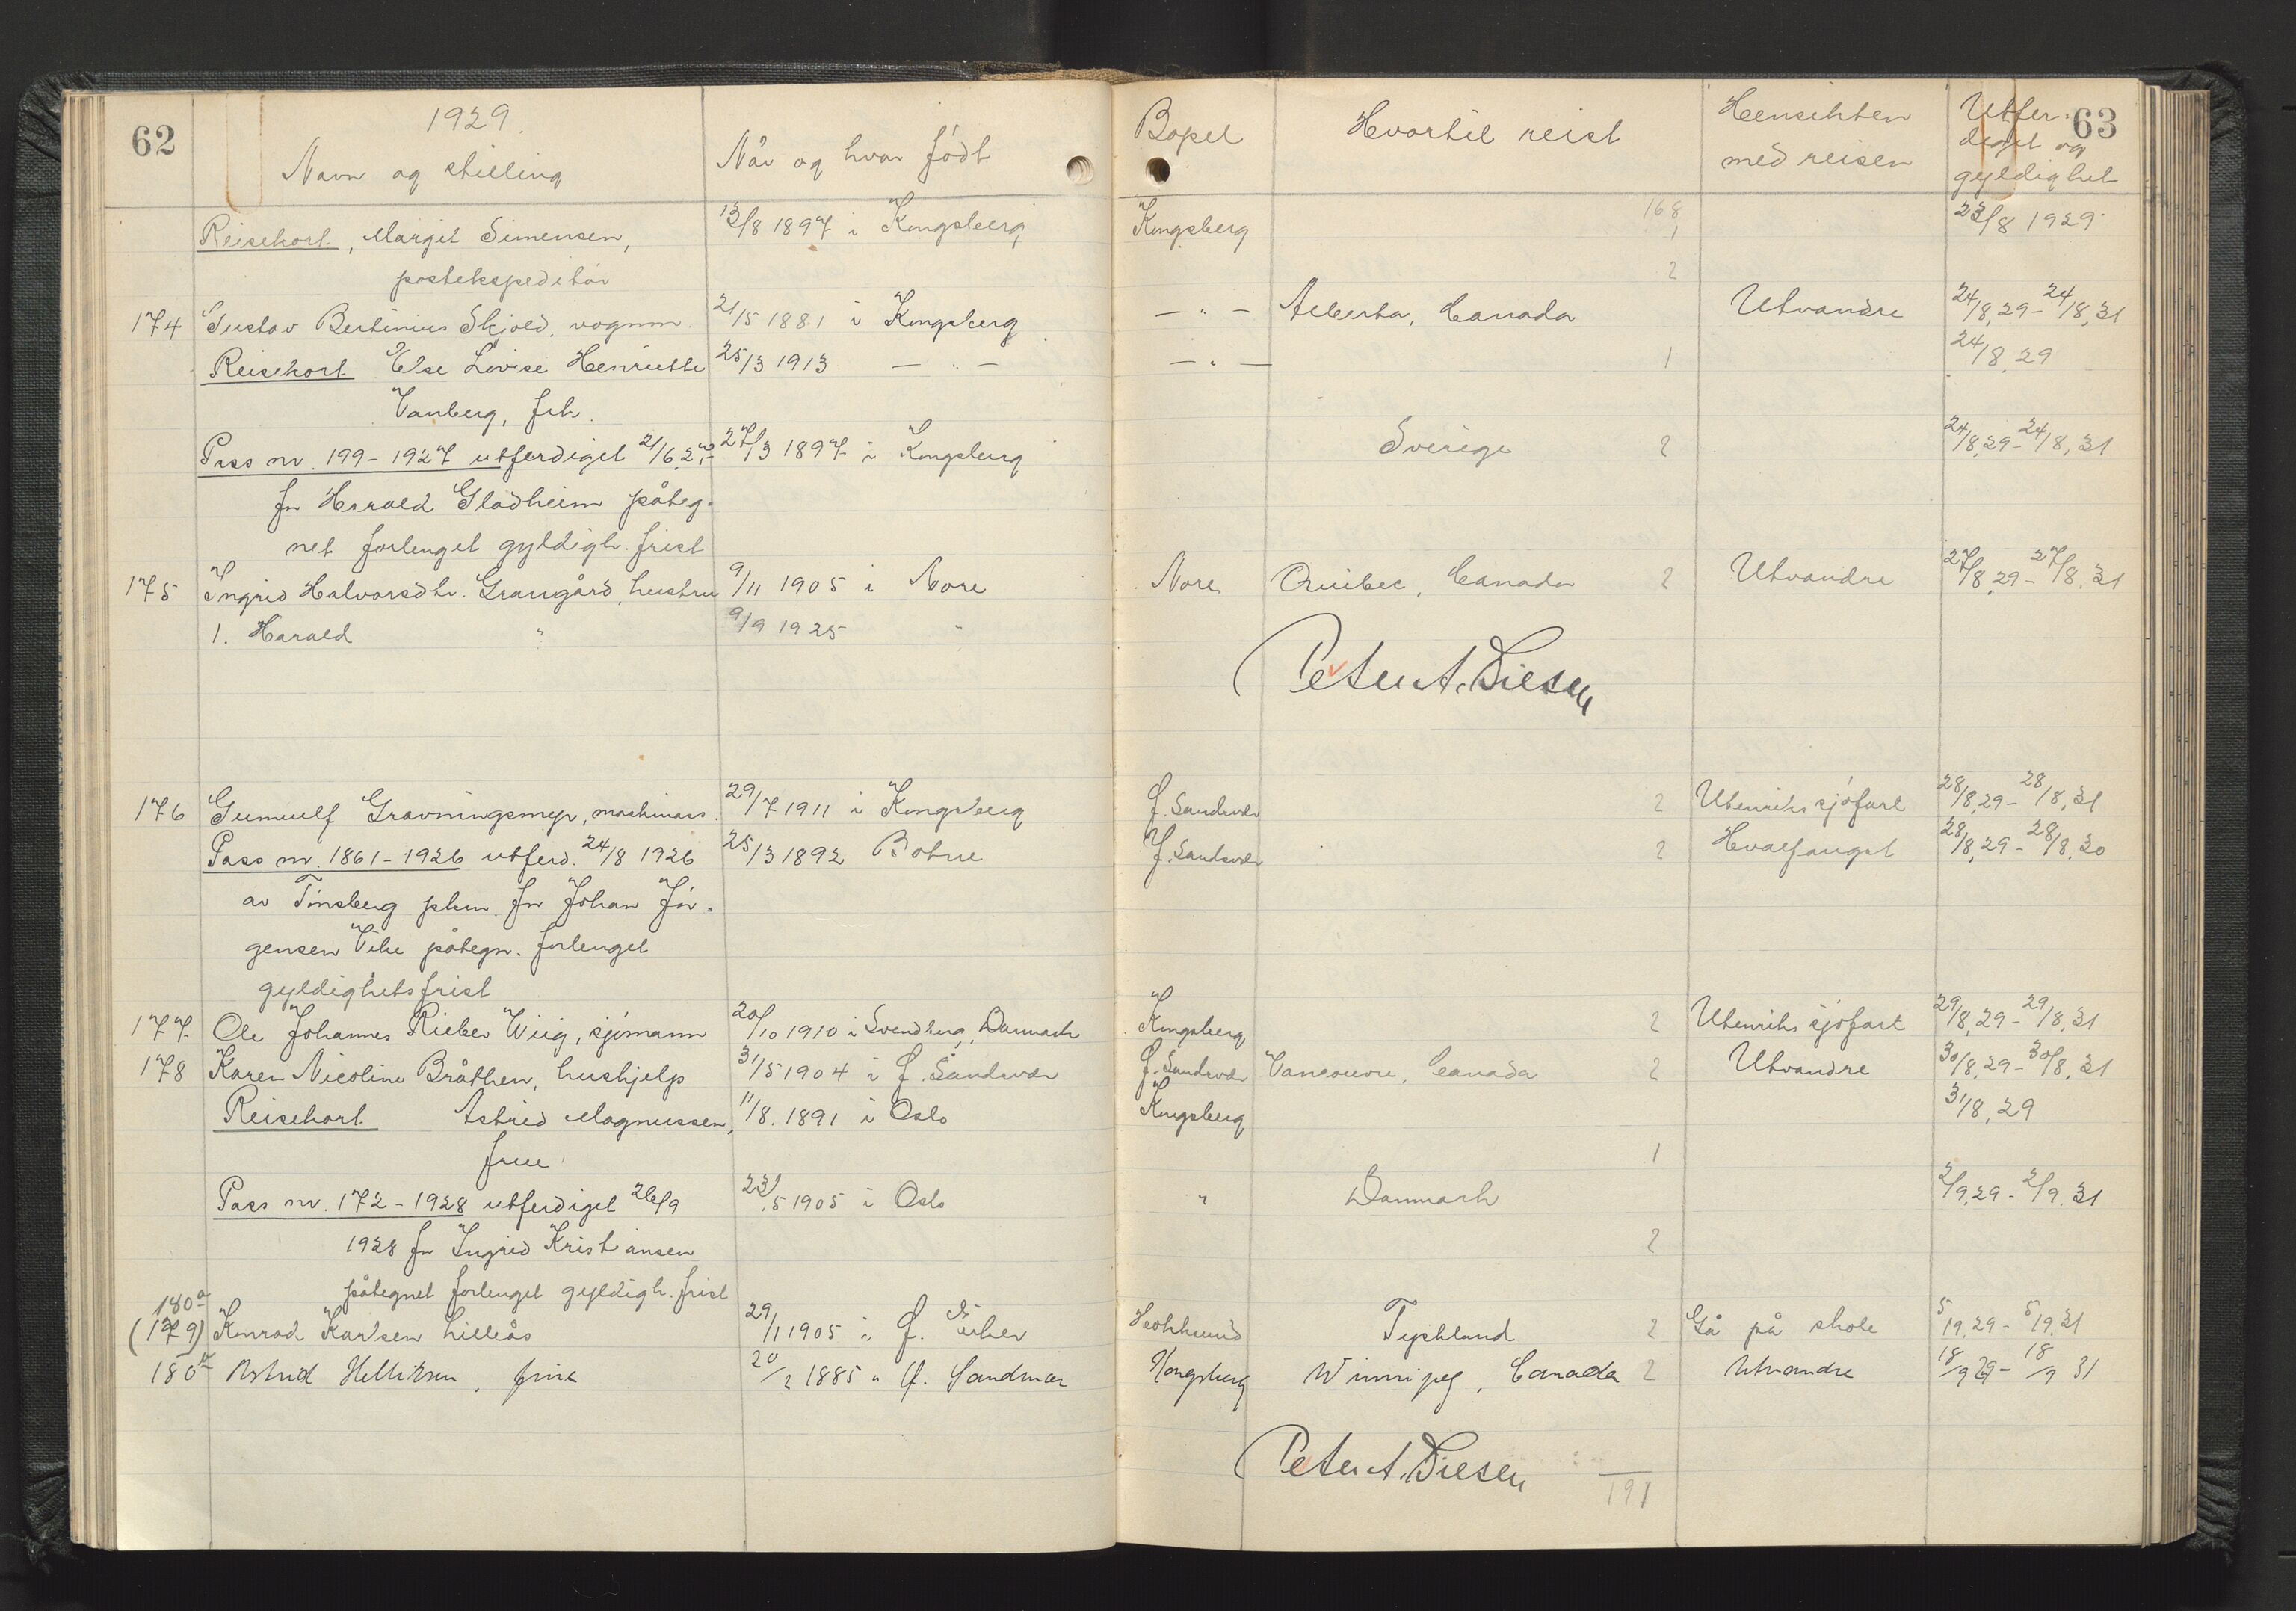 62
1929.
Navn og stilling
Når og hvor født
Bopel
Hvortil reist
Hensikten med reisen
Utferdiget og gyldighet
63
168
Reisekort, Margit Simensen, 13/8 1897 i Kongsberg Kongsberg 1 23/8 1929
postekspeditør 2
174 Gustav Bertinius Skjold, vognm. 21/5 1881 i Kongsberg — " — Alberta, Canada Utvandre 24/8,29 - 24/8,31
Reisekort Else Lovise Henriette 25/3 1913 — " — — " — 1 24/8,29
Vanberg, frk.
Pass nr. 199-1927 utferdiget 21/6,27 27/3 1897 i Kongsberg Sverige 2 24/8,29 - 24/8,31
for Harald Gladheim påteg-
net forlenget gyldigh. frist
175 Ingrid Halvorsdtr. Grangård, hustru 9/11 1905 i Nore Nore Quibec, Canada 2 Utvandre 27/8,29 - 27/8,31
1. Harald " 9/9 1925 "
Peter A. Diesen
176 Gunnulf Gravningsmyr, maskinass. 29/7 1911 i Kongsberg Ø. Sandsvær 2 Utenriks sjøfart 28/8,29 - 28/8,31
Pass nr. 1861-1926 utferd. 24/8 1926 25/3 1892 Botne Y. Sandsvær 2 Hvalfangst 28/8,29 - 28/8,30
av Tønsberg pkm. for Johan Jør-
gensen Vike påtegn. forlenget
gyldighetsfrist
177 Ole Johannes Rieber Wiig, sjømann 20/10 1910 i Svendborg, Danmark Kongsberg 2 Utenriks sjøfart 29/8,29 - 29/8,31
178 Karen Nicoline Bråthen, hushjelp 31/5 1904 i Ø. Sandsvær Ø. Sandsvær Vancouvre, Canada 2 Utvandre 30/8,29 - 30/8,31
Reisekort Astrid Magnussen, 11/8. 1891 i Oslo Kongsberg 31/8,29
frue 1
Pass nr. 172-1928 utferdiget 26/9 23/5 1905 i Oslo " Danmark 2/9,29 - 2/9,31
1928 for Ingrid Kristiansen 2
påtegnet forlenget gyldigh. frist
180a
(179) Konrad Karlsen Lilleås 29/1 1905 i Ø. Eiker Hokksund Tyskland 2 Gå på skole 5/9,29 - 5/9,31
180b Astrid Helliksen, frue 20/2 1885 " Ø. Sandsvær Kongsberg Winnipeg, Canada 2 Utvandre 18/9 29 - 18/9 31
Peter A. Diesen
191